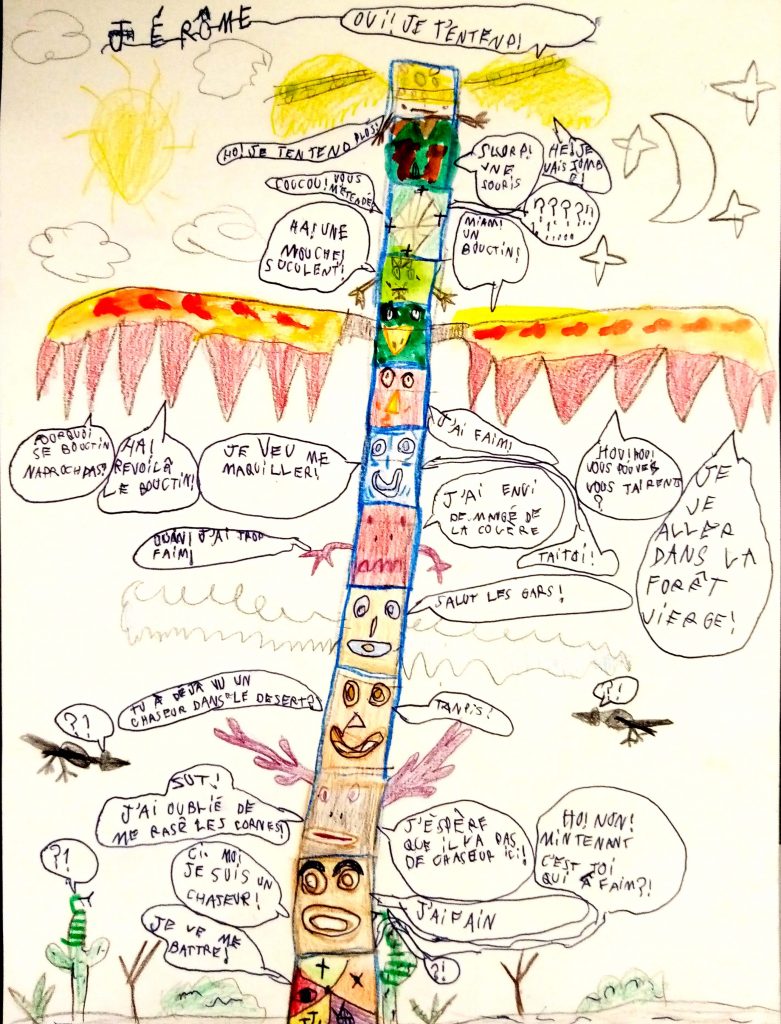 JÉRÔME
OUI! JE T'ENTEND!
HO! JE TENTEND PLUS!
SLUORP!
UNE
SOURIS
HÉ! JE
VAIS TOMB
É!
COUCOU! VOUS
M'ÉTENDÉ
? ? ? ? !!
HA! UNE
MOUCHE!
SUCULENT!
MIAM!
UN
BOUCTIN!
POURQUOI
SE BOUCTIN
NAPROCH PAS?
HA!
REVOILÀ
LE BOUCTIN!
JE VEU ME
MAQUILLER!
J'AI FAIM!
HOU! HOU!
VOUS POUVEZ
VOUS TAIRENT
?
JE
JE
ALLER
DANS LA
FORÊT
VIERGE!
J'AI ENVI
DE MANGÉ DE
LA COULÈRE
OUAN! J'AI TROP
FAIM!
TAITOI!
SALUT LES GARS!
TU À DÉJÀ VU UN
CHASEUR DANS LE DESERT?
TANPIS!
?!
?!
SUT!
J'AI OUBLIÉ DE
ME RASÉ LES CORNES!
J'ÈSPÈRE
QUE IL Y A PAS
DE CHASEUR ICI!
HO! NON!
MINTENANT
C'EST TOI
QUI À FAIM?!
?!
CI. MOI
JE SUIS UN
CHASEUR!
J'AI FAIN
JE VE ME
BATTRE!
?!